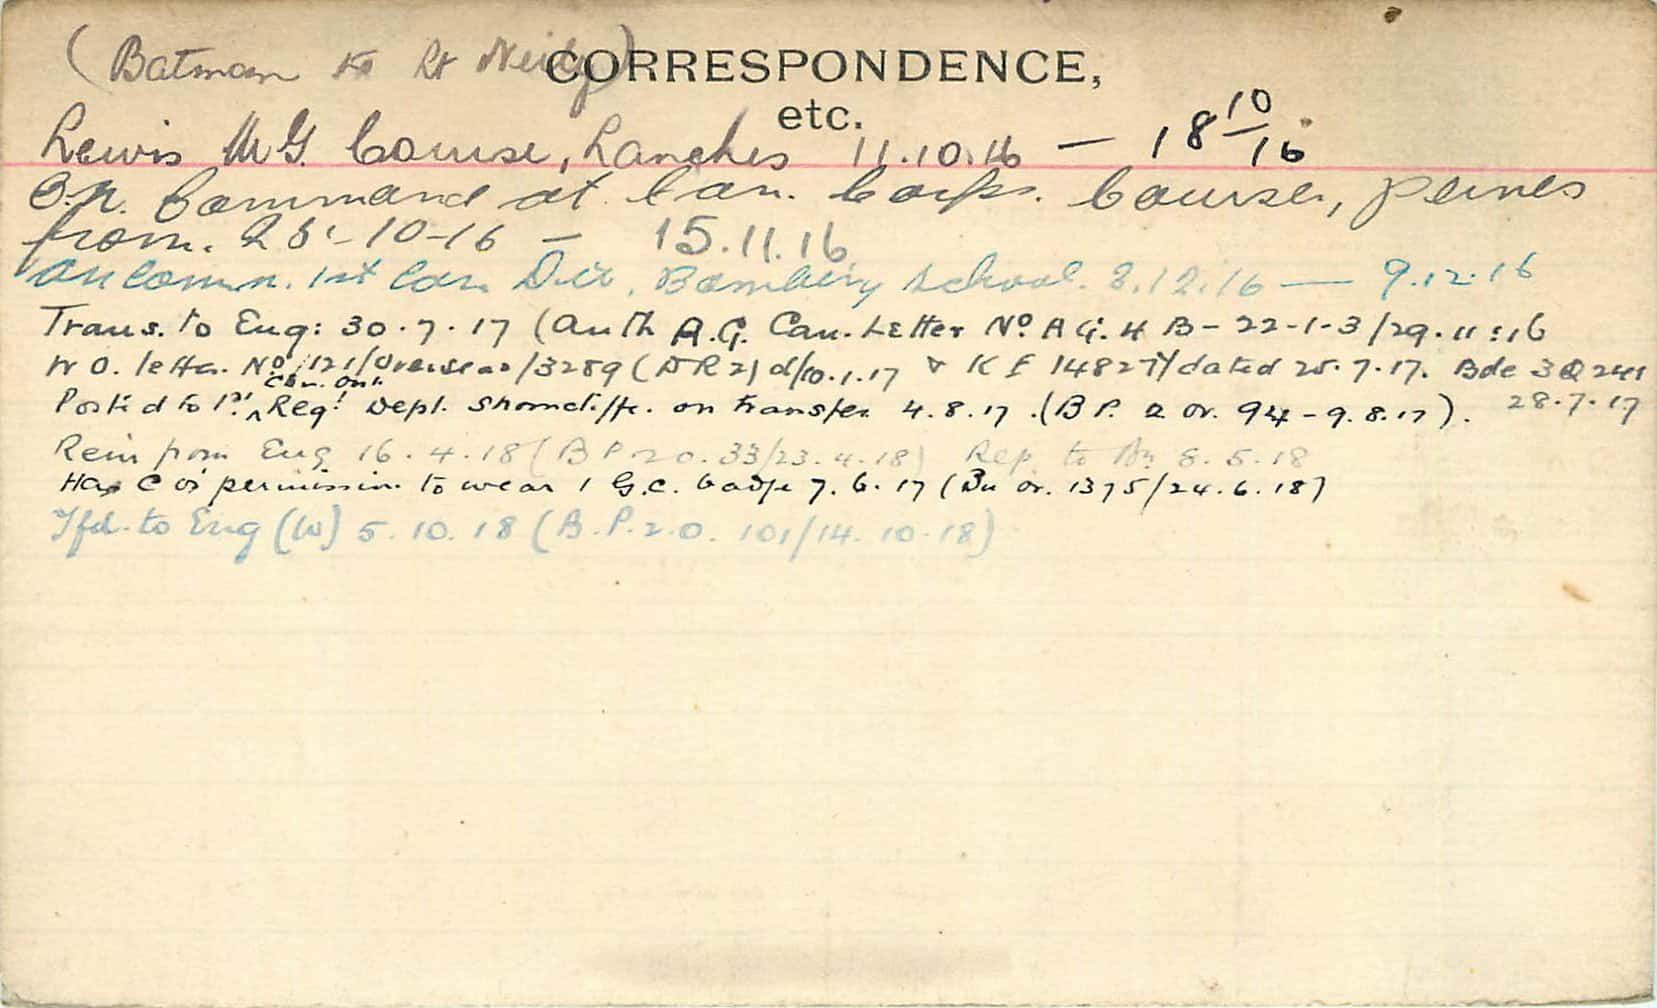 (Batman to Lt )
CORRESPONDENCE,
etc.
Lewis M G Course, 11.10.16 — 18 10/16
On Command at Can. Corps. Course, Pernes
from. 25-10-16 — 15.11.16
On Comm. 1st Can Div. Bombing School. 8.12.16 — 9.12.16
Trans. to Eng: 30.7.17 (Auth A.G. Can. Letter No AG. 4 B-22-1-3/29.11:16
W O. letter. No/121/Overseas/3289 (AR2) d/10.1.17 & K E dated 25.7.17. Bde 3 Q 241
28.7.17
Can. Ont:
Posted to 1st Reg! Dept. Shorncliffe. on transfer 4.8.17. (B P. 2 or. 94-9.8.17).
Rein from Eng 16.4.18 (B P 2 O. 33/23.4.18) Rep to Bn 8.5.18
Has C O's permission to wear 1 G.C. badge 7.6.17 (Bn or. 1375/24.6.18)
Tfd. to Eng (W) 5.10.18 (B.P.2.O. 101/14.10.18)